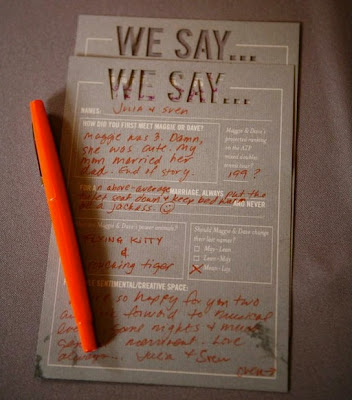 WE SAY...
WE SAY...
NAMES: Julia & Sven
HOW DID YOU FIRST MEET MAGGIE OR DAVE?
Maggie was 3. Damn,
she was cute. My
mom married her
dad. End of story.
Maggie & Dave's
projected ranking
on the ATP
mixed doubles
tennis tour?
199?
an above-average MARRIAGE, ALWAYS put the
toilet seat down & keep bed
AND NEVER
jackass.
Maggie & Dave's power animals?
FLYING KITTY
&
crouching tiger
Should Maggie & Dave change
their last name?
May-Lean
Lean-May
SENTIMENTAL/CREATIVE SPACE:
so happy for you two
forward to
nights & much
merriment. Love
always... Julia & Sven